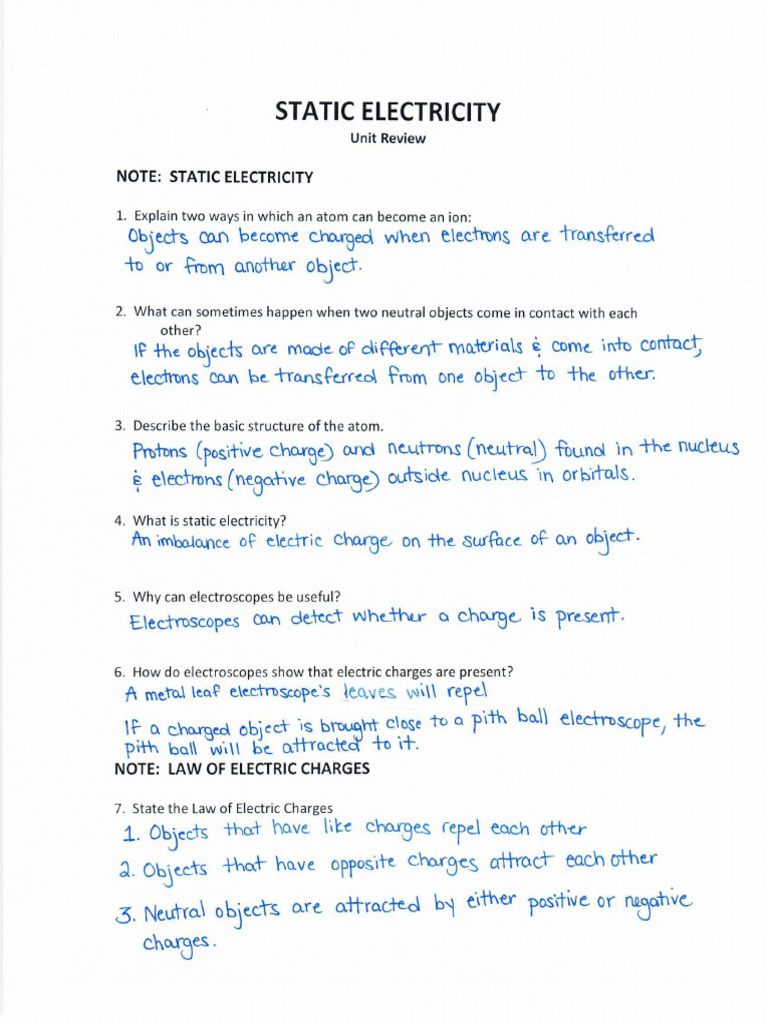 STATIC ELECTRICITY
Unit Review
NOTE: STATIC ELECTRICITY
1. Explain two ways in which an atom can become an ion:
Objects can become charged when electrons are transferred
to or from another object.
2. What can sometimes happen when two neutral objects come in contact with each
other?
If the objects are made of different materials & come into contact,
electrons can be transferred from one object to the other.
3. Describe the basic structure of the atom.
Protons (positive charge) and neutrons (neutral) found in the nucleus
& electrons (negative charge) outside nucleus in orbitals.
4. What is static electricity?
An imbalance of electric charge on the surface of an object.
5. Why can electroscopes be useful?
Electroscopes can detect whether a charge is present.
6. How do electroscopes show that electric charges are present?
A metal leaf electroscope's leaves will repel
If a charged object is brought close to a pith ball electroscope, the
pith ball will be attracted to it.
NOTE: LAW OF ELECTRIC CHARGES
7. State the Law of Electric Charges
1. Objects that have like charges repel each other
2. Objects that have opposite charges attract each other
3. Neutral objects are attracted by either positive or negative
charges.